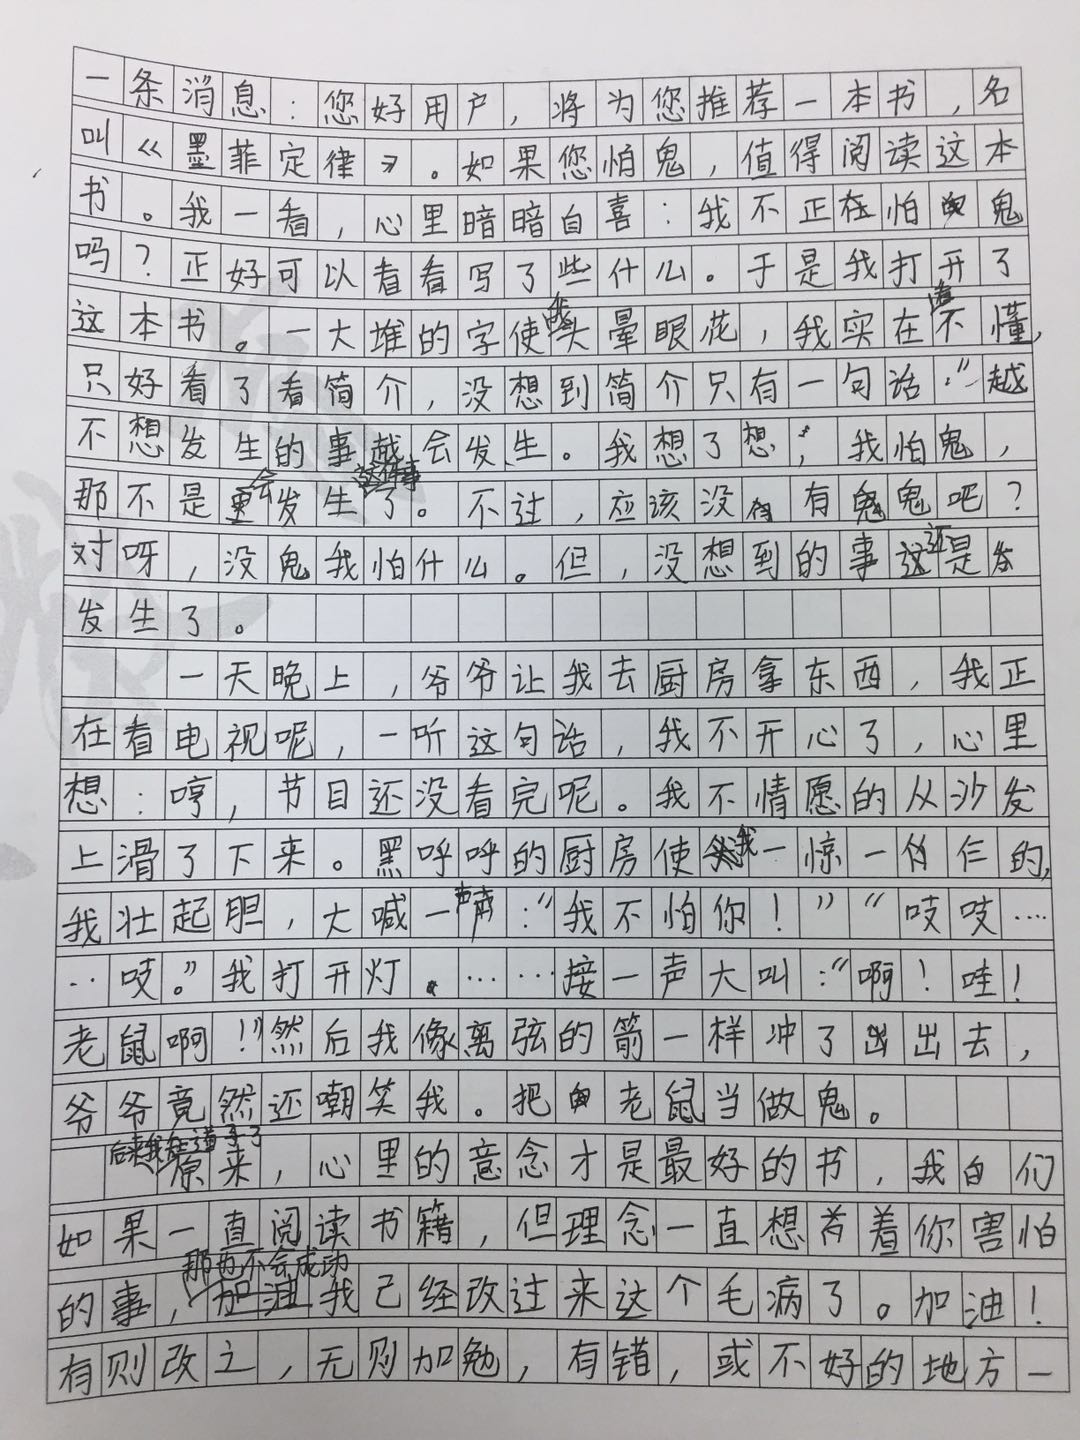 一条消息：您好用户，将为您推荐一本书，名
叫《墨菲定律》。如果您怕鬼，值得阅读这本
书。我一看，心里暗暗自喜：我不正在怕鬼
吗？正好可以看看写了些什么。于是我打开了
这本书。一大堆的字使我头晕眼花，我实在看不懂，
只好看了看简介，没想到简介只有一句话：“越
不想发生的事越会发生。我想了想，我怕鬼，
那不是会发生这件事了。不过，应该没有鬼吧？
对呀，没鬼我怕什么。但，没想到的事还是
发生了。
一天晚上，爷爷让我去厨房拿东西，我正
在看电视呢，一听这句话，我不开心了，心里
想：哼，节目还没看完呢。我不情愿的从沙发
上滑了下来。黑呼呼的厨房使我一惊一乍的，
我壮起胆，大喊一声：“我不怕你！”“吱吱…
…吱。”我打开灯。……接一声大叫：“啊！哇！
老鼠啊！”然后我像离弦的箭一样冲了出去，
爷爷竟然还嘲笑我。把老鼠当做鬼。
后来我知道了
原来，心里的意念才是最好的书，我们
如果一直阅读书籍，但理念一直想着你害怕
的事，那也不会成功我已经改过来这个毛病了。加油！
有则改之，无则加勉，有错，或不好的地方一